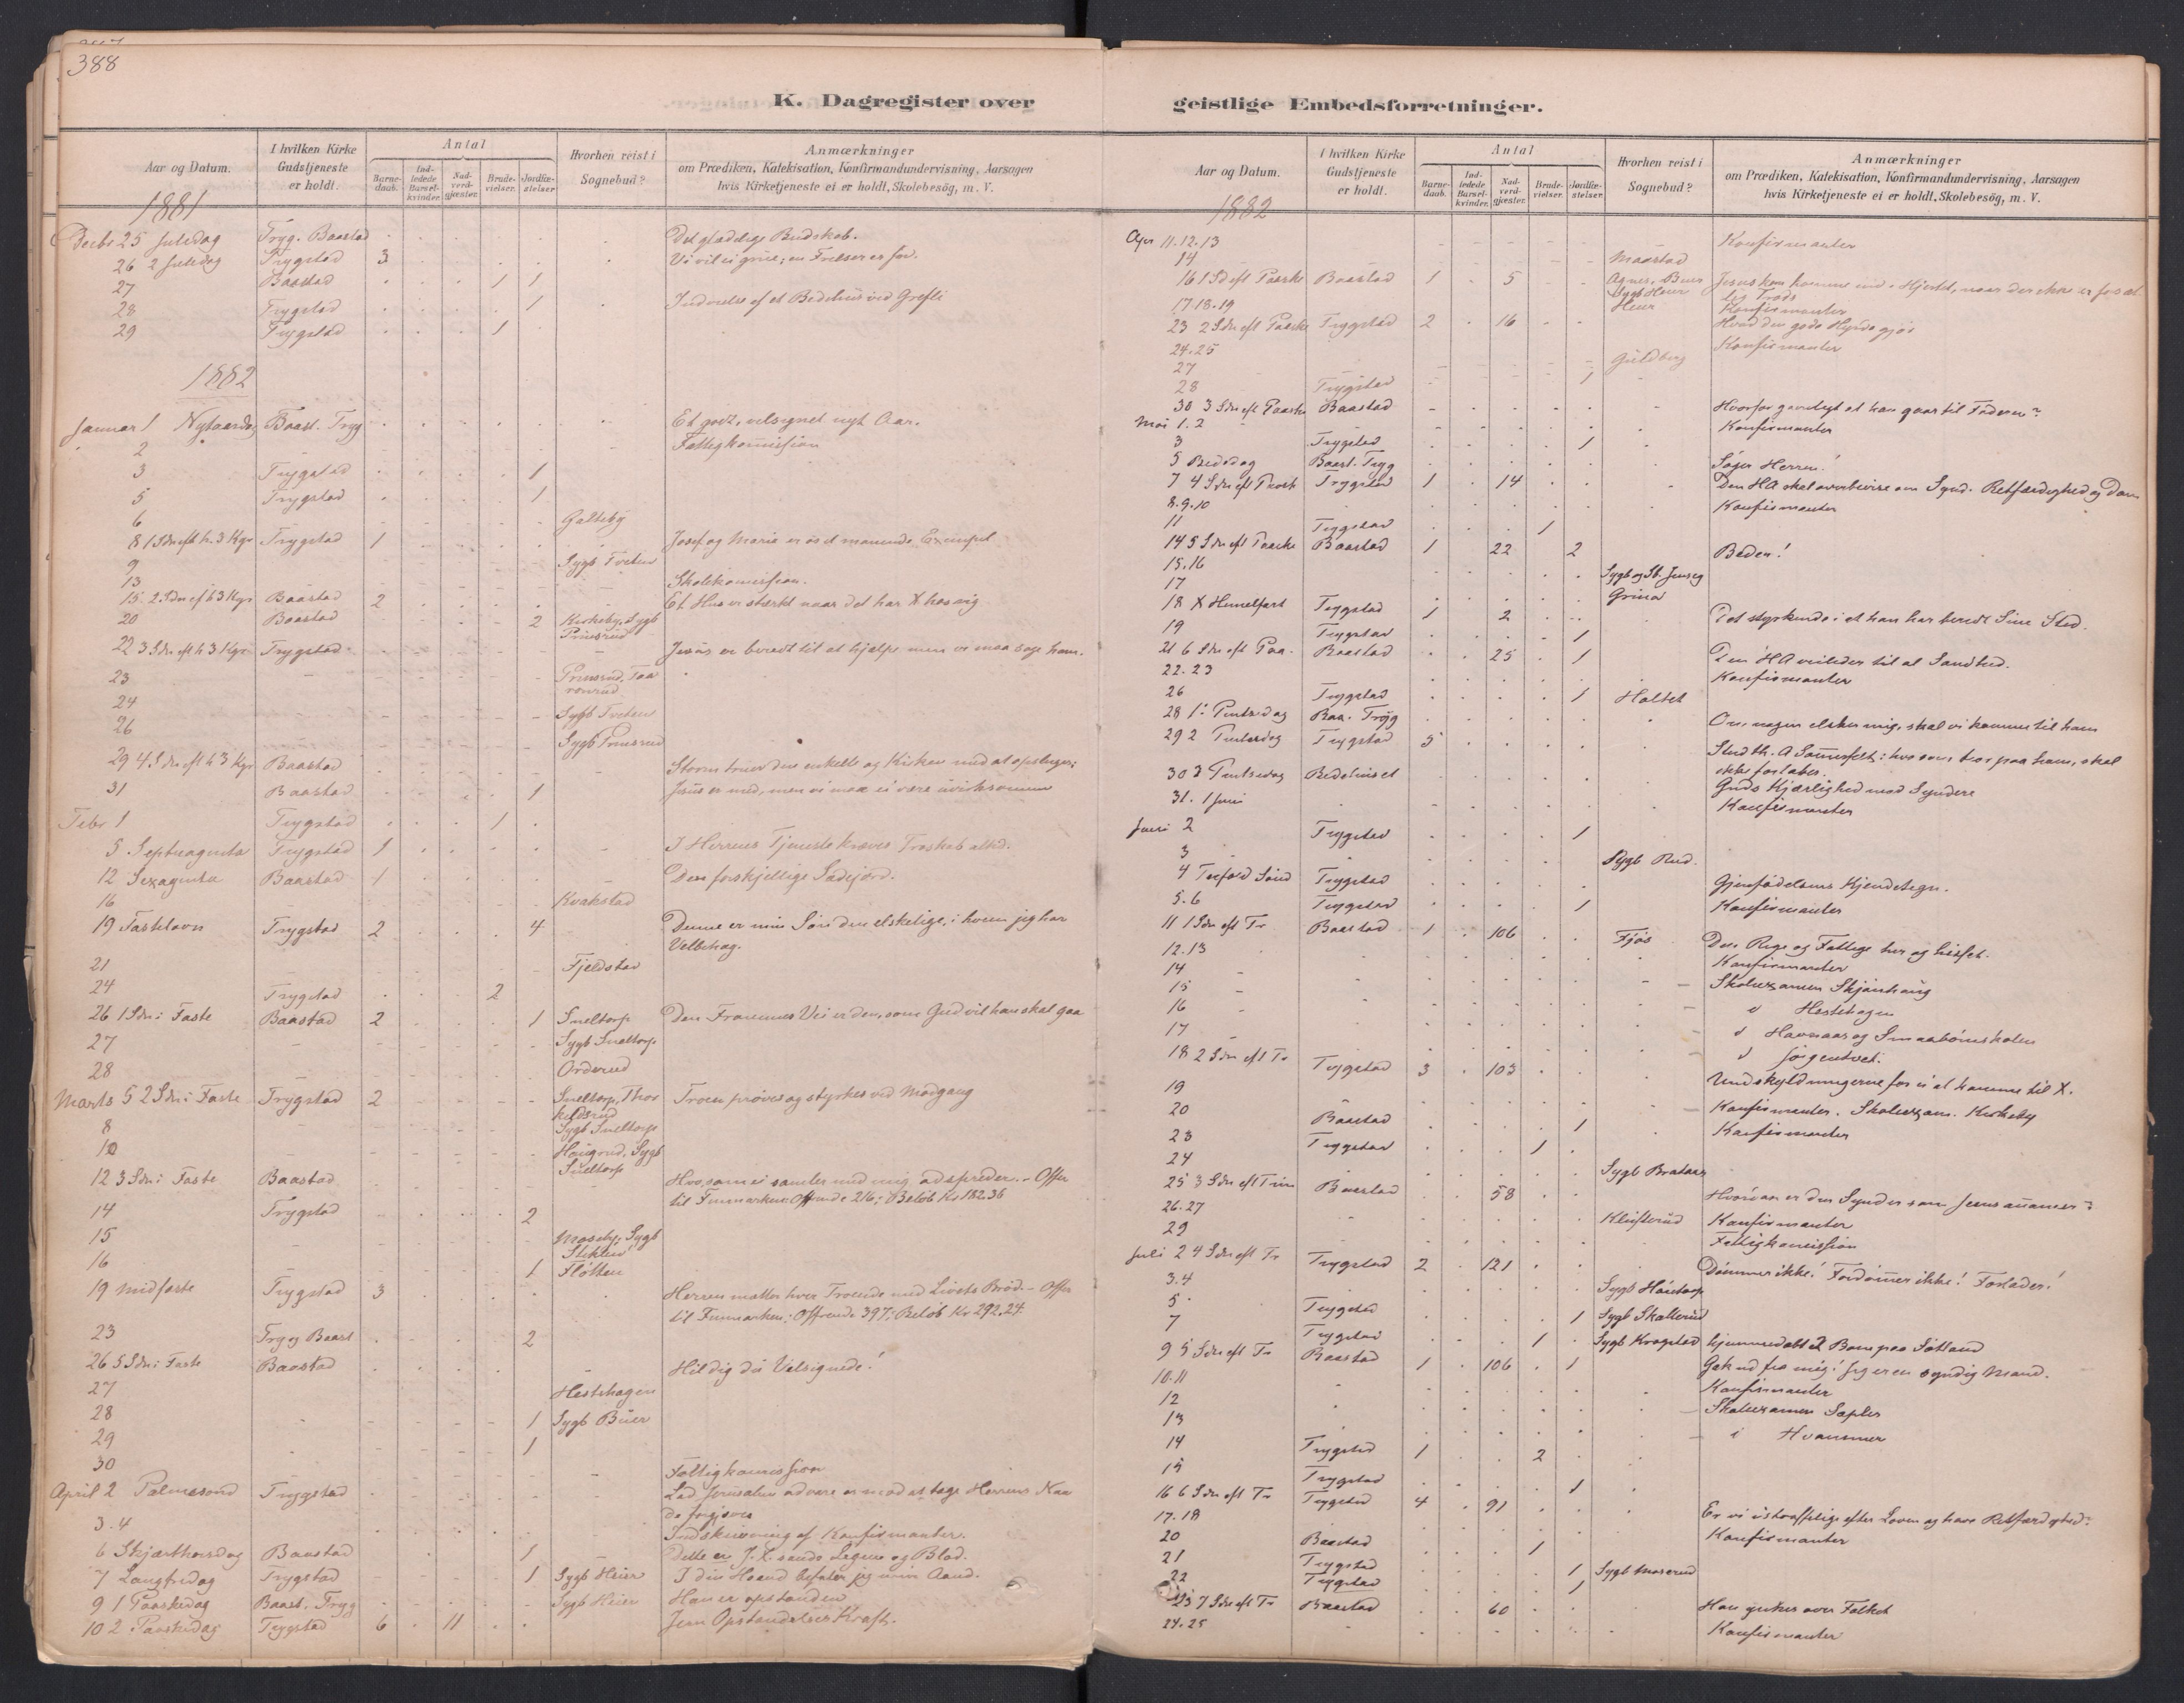 388
K. Dagregister over
Aar og Datum.
I hvilken Kirke Gudstjeneste er holdt.
Antal
Barne-daab.
Ind-ledede Barsel-kvinder.
Nad-verd-gjæster.
Brude-vielser.
Jordfæ-stelser
Hvorhen reist i Sognebud?
Anmærkninger
om Prædiken, Katekisation, Konfirmandundervisning, Aarsagen
hvis Kirketjeneste ei er holdt, Skolebesög, m. V.
1881
Decbr 25 Juledag Tryg. Baastad Det glædelige Budskab.
26 2 Juledag Trygstad 3 Vi vil ei grue; en Frelser er før.
27 Baastad 1 1
28 Trygstad 1 Indvielse af et Bedehus ved Grefli
29 Trygstad 1
1882
Januar 1 Nytaarsdag Baast. Tryg Et godt, velsignet nyt Aar.
2 Fattigkomission
3 Trygstad 1
5 Trygstad 1
6 Galteby
8 1 Sdn eft h. 3 Kgr Trygstad 1 Josef og Maria er os et manende Exempel
9 Sygb Tveten
13 Skolekomission.
15 2 Sdn eft h 3 Kgr Baastad 2 Et Hus er stærkt naar det har X hos sig
20 Baastad 2 Kirkeby, Sygb
Prinsrud
22 3 Sdn eft h 3 Kgr Trygstad Jesus er beredt til at hjælpe men vi maa søge ham.
23 Prinsrud.
24 Sygb Tveten
26 Sygb Prinsrud
29 4 Sdn eft h 3 Kgr Baastad Storm truer den enkelte og Kirken med at opsluges;
31 Baastad 1 Jesus er med, men vi maa ei være uvirksomme
Febr 1 Trygstad 1
5 Septuagesita Trygstad 1 I Herrens Tjeneste kræves Troskab altid.
12 Sexagesita Baastad 1 Den forskjellige Sædejord.
16 Kvakstad
19 Fastelavn Trygstad 2 4 Denne er min Søn den elskelige, i hvem jeg har
Velbehag.
21 Fjeldstad
24 Trygstad 2
26 1 Sdn i Faste Baastad 2 1 Sneltorp Den Frommes Vei er den, som Gud vil han skal gaa
27 Sygb Sneltorp
28 Orderud
Marts 5 2 Sdn i Faste Trygstad 2 Sneltorp, Thor
kildsrud Troen prøves og styrkes ved Modgang
8 Sygb Sneltorp
10 Haugrud. Sygb
Sneltorp
12 3 Sdn i Faste Baastad Hvo, som ei samler med mig, adspreder. - Offer
til Finmarken: Offrende 216; Beløb Kr 182.36
14 Trygstad 2
15 Moseby; Sygb
16 1 Fløtten
19 Midfaste Trygstad 3 Herren mætter hver Troende med Livets Brød. - Offer
til Finmarken: Offrende 397; Beløb Kr 292.24.
23 Tryg Baast 2
26 5 Sdn i Faste Baastad Hil dig du Velsignede!
27 Hestehagen
28 1 Sygb Buer
29 1
30 Fattigkomission
April 2 Palmesønd Trygstad Lad Jerusalem advare os mod at tage Herrens Naa
de forgjæves
3.4 Indskrivning af Konfirmanter.
6 Skjærthorsdag Baastad 1 Dette er J. X. sande Legeme og Blod.
7 Langfredag Trygstad 1 Sygb Heier I din Haand befaler jeg min Aand.
9 1 Paaskedag Baast. Tryg Sygb Heier Han er opstanden
10 2 Paaskedag Trygstad 6 11 Jesu Opstandelses Kraft.
geistlige Embedsforretninger.
Aar og Datum.
I hvilken Kirke Gudstjeneste er holdt.
Antal
Barne-daab.
Ind-ledede Barsel-kvinder.
Nad-verd-gjæster.
Brude-vielser.
Jordfæ-stelser
Hvorhen reist i Sognebud?
Anmærkninger
om Prædiken, Katekisation, Konfirmandundervisning, Aarsagen
hvis Kirketjeneste ei er holdt, Skolebesög, m. V.
1882
Apr 11.12.13 Konfirmanter
14 Maastad
16 1 Sd eft Paaske Baastad 1 5 Jesus kan komme ind i Hjertet, naar der ikke er
Trods
17.18.19 Heier Konfirmanter
23 2 Sdn eft Paaske Trygstad 2 16 Hvad den gode Hyrde gjør
24.25 Konfirmanter
27 Guldberg
28 Trygstad 1
30 3 Sdn eft Paaske Baastad Hvorfor gavnligt at han gaar til Faderen?
Mai 1.2 Konfirmanter
3 Trygstad 1
5 Bededag Baast. Tryg Søger Herren!
7 4 Sdn eft Paask Trygstad 1 14 Den HA skal overbevise om Synd. Retfærdighed og Dom
8.9.10 Konfirmanter
11 Trygstad 1
14 5 Sdn eft Paaske Baastad 1 22 2 Beder!
15.16
17 Sygb
18 X Himelfart Trygstad 1 2 Grina Det styrkende i at han har beredt Sine Sted.
19 Trygstad 1
21 6 Sdn eft Paa. Baastad 25 1 Den HA veileder til al Sandhed.
22.23 Konfirmanter
26 Trygstad 1 Haltet
28 1. Pintsedag Baa. Tryg Om nogen elsker mig, skal vi komme til ham
29 2 Pintsedag Trygstad 5 Stud th. A Sømmefelt: hvo som tror paa ham, skal
ikke fortabes.
30 3 Pintsedag Bedehuset Guds Kjærlighed mod Syndere
31. 1 Juni Konfirmanter
Juni 2 Trygstad 1
3 Sygb Rud.
4 Trefold Sønd Trygstad Gjenfødelsens Kjendetegn.
5.6 Trygstad 1 Konfirmanter
11 1 Sdn eft Tr Baastad 1 106 Fjøs Den Rige og Fattige her og hisset.
12.13 Konfirmanter
14 Skolexamen Skjønhaug
15 " Hestehagen
16 " Havnaas og Smaabørnskolen
17 " Sørgentvet.
18 2 Sdn eft Tr Trygstad 3 103 Undskyldningerne for ei at komme til X.
19 Konfirmanter. Skolexam. Kirkeby
20 Baastad 1 Konfirmanter
23 Trygstad 1
24 Sygb Brataas
25 3 Sdn eft Trin Baastad 58 Hvordan er den Synder som Jesus anamer?
26.27 Konfirmanter
29 Klufterud Fattigkomission
Juli 2 4 Sdn eft Tr Trygstad 2 121 Dømmer ikke! Fordømmer ikke! Forlader!
3.4 Sygb Hauetorp
5 Trygstad 1 Sygb Skallerud
7 Trygstad 1 Sygb Kragstad hjemmedøbt 2 Børn paa Søtland
9 5 Sdn eft Tr Baastad 1 106 1 Gak ud fra mig! Jeg er en syndig Mand.
10.11 Konfirmanter
12 Skolexamen Sæpler
13 i Hvammer
14 Trygstad 1 2
15 Trygstad 1
16 6 Sdn eft Tr Trygstad 4 91 Er vi ustraffelige efter Loven og have Retfærdighed?
17.18 Konfirmanter
20 Baastad 1
21 Trygstad 1 Sygb Moserud
22 Trygstad 1
23 7 Sdn eft Tr Baastad 60 Han ynkes over Folket
24.25 Konfirmanter